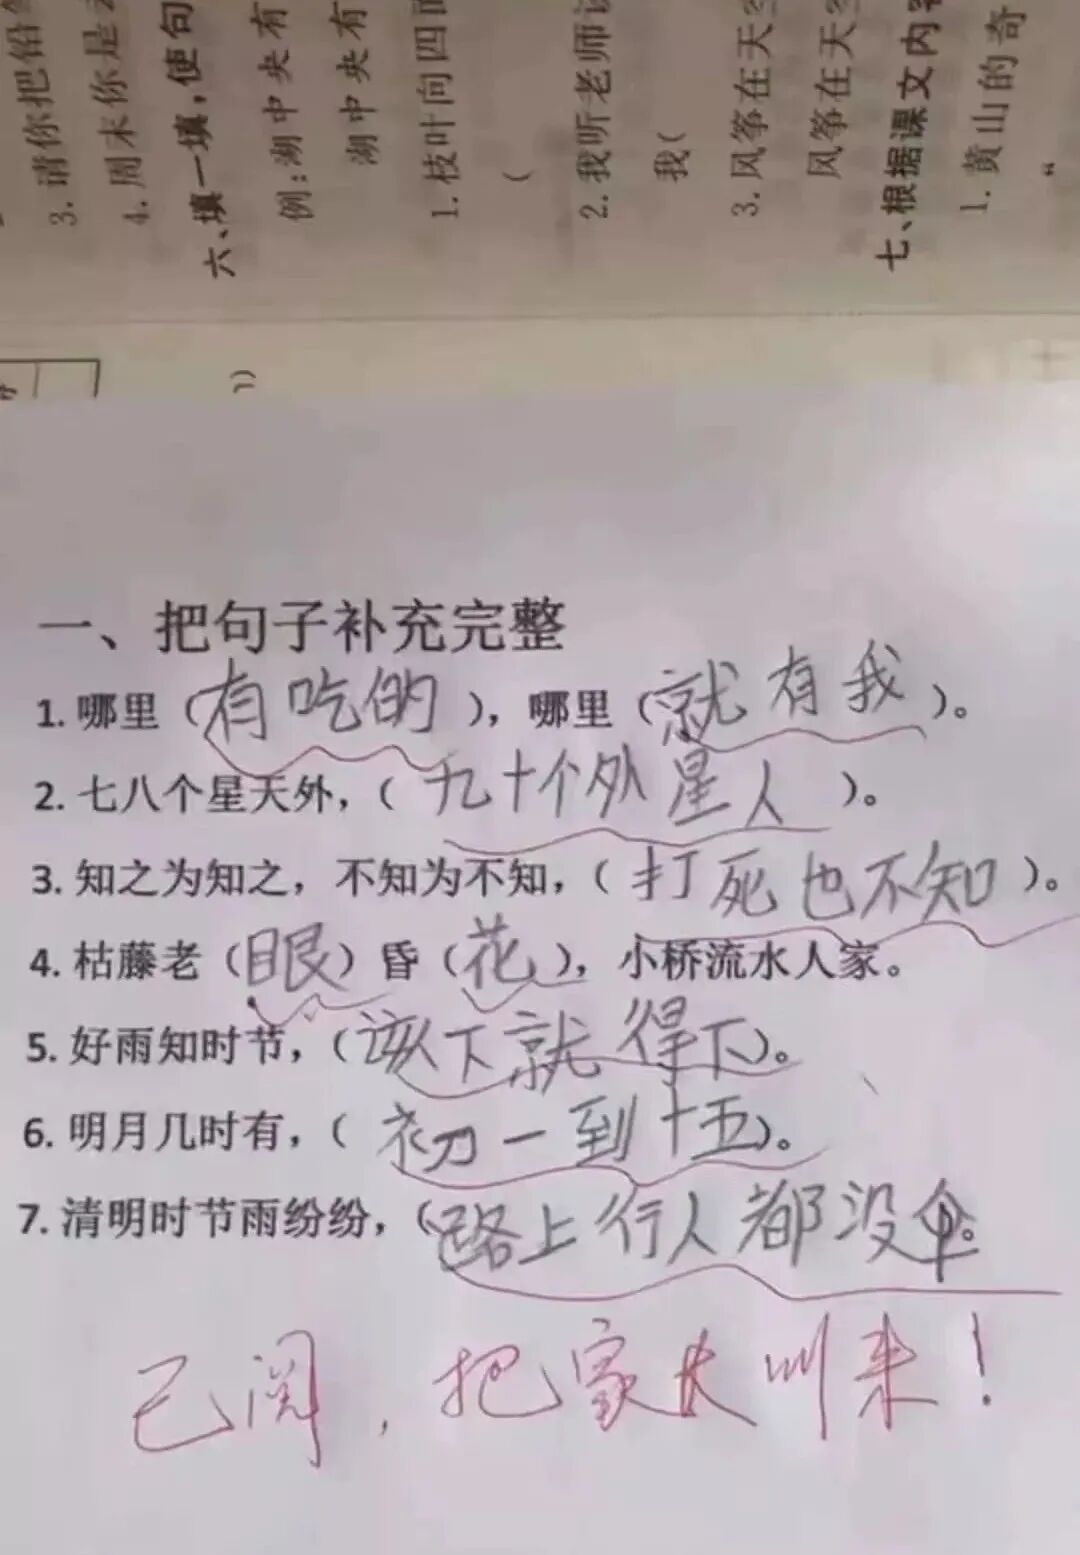 3. 请你把铅
4. 周末你是
六、填一填,使句
例:湖中央有
湖中央有
1. 枝叶向四面
(
2. 我听老师
我(
3. 风筝在天空
风筝在天空
七、根据课文内容
1. 黄山的奇
“
一、把句子补充完整
1. 哪里（有吃的），哪里（就有我）。
2. 七八个星天外，（九十个外星人）。
3. 知之为知之，不知为不知，（打死也不知）。
4. 枯藤老（眼）昏（花），小桥流水人家。
5. 好雨知时节，（该下就得下）。
6. 明月几时有，（初一到十五）。
7. 清明时节雨纷纷，（路上行人都没伞。
已阅，把家长叫来！